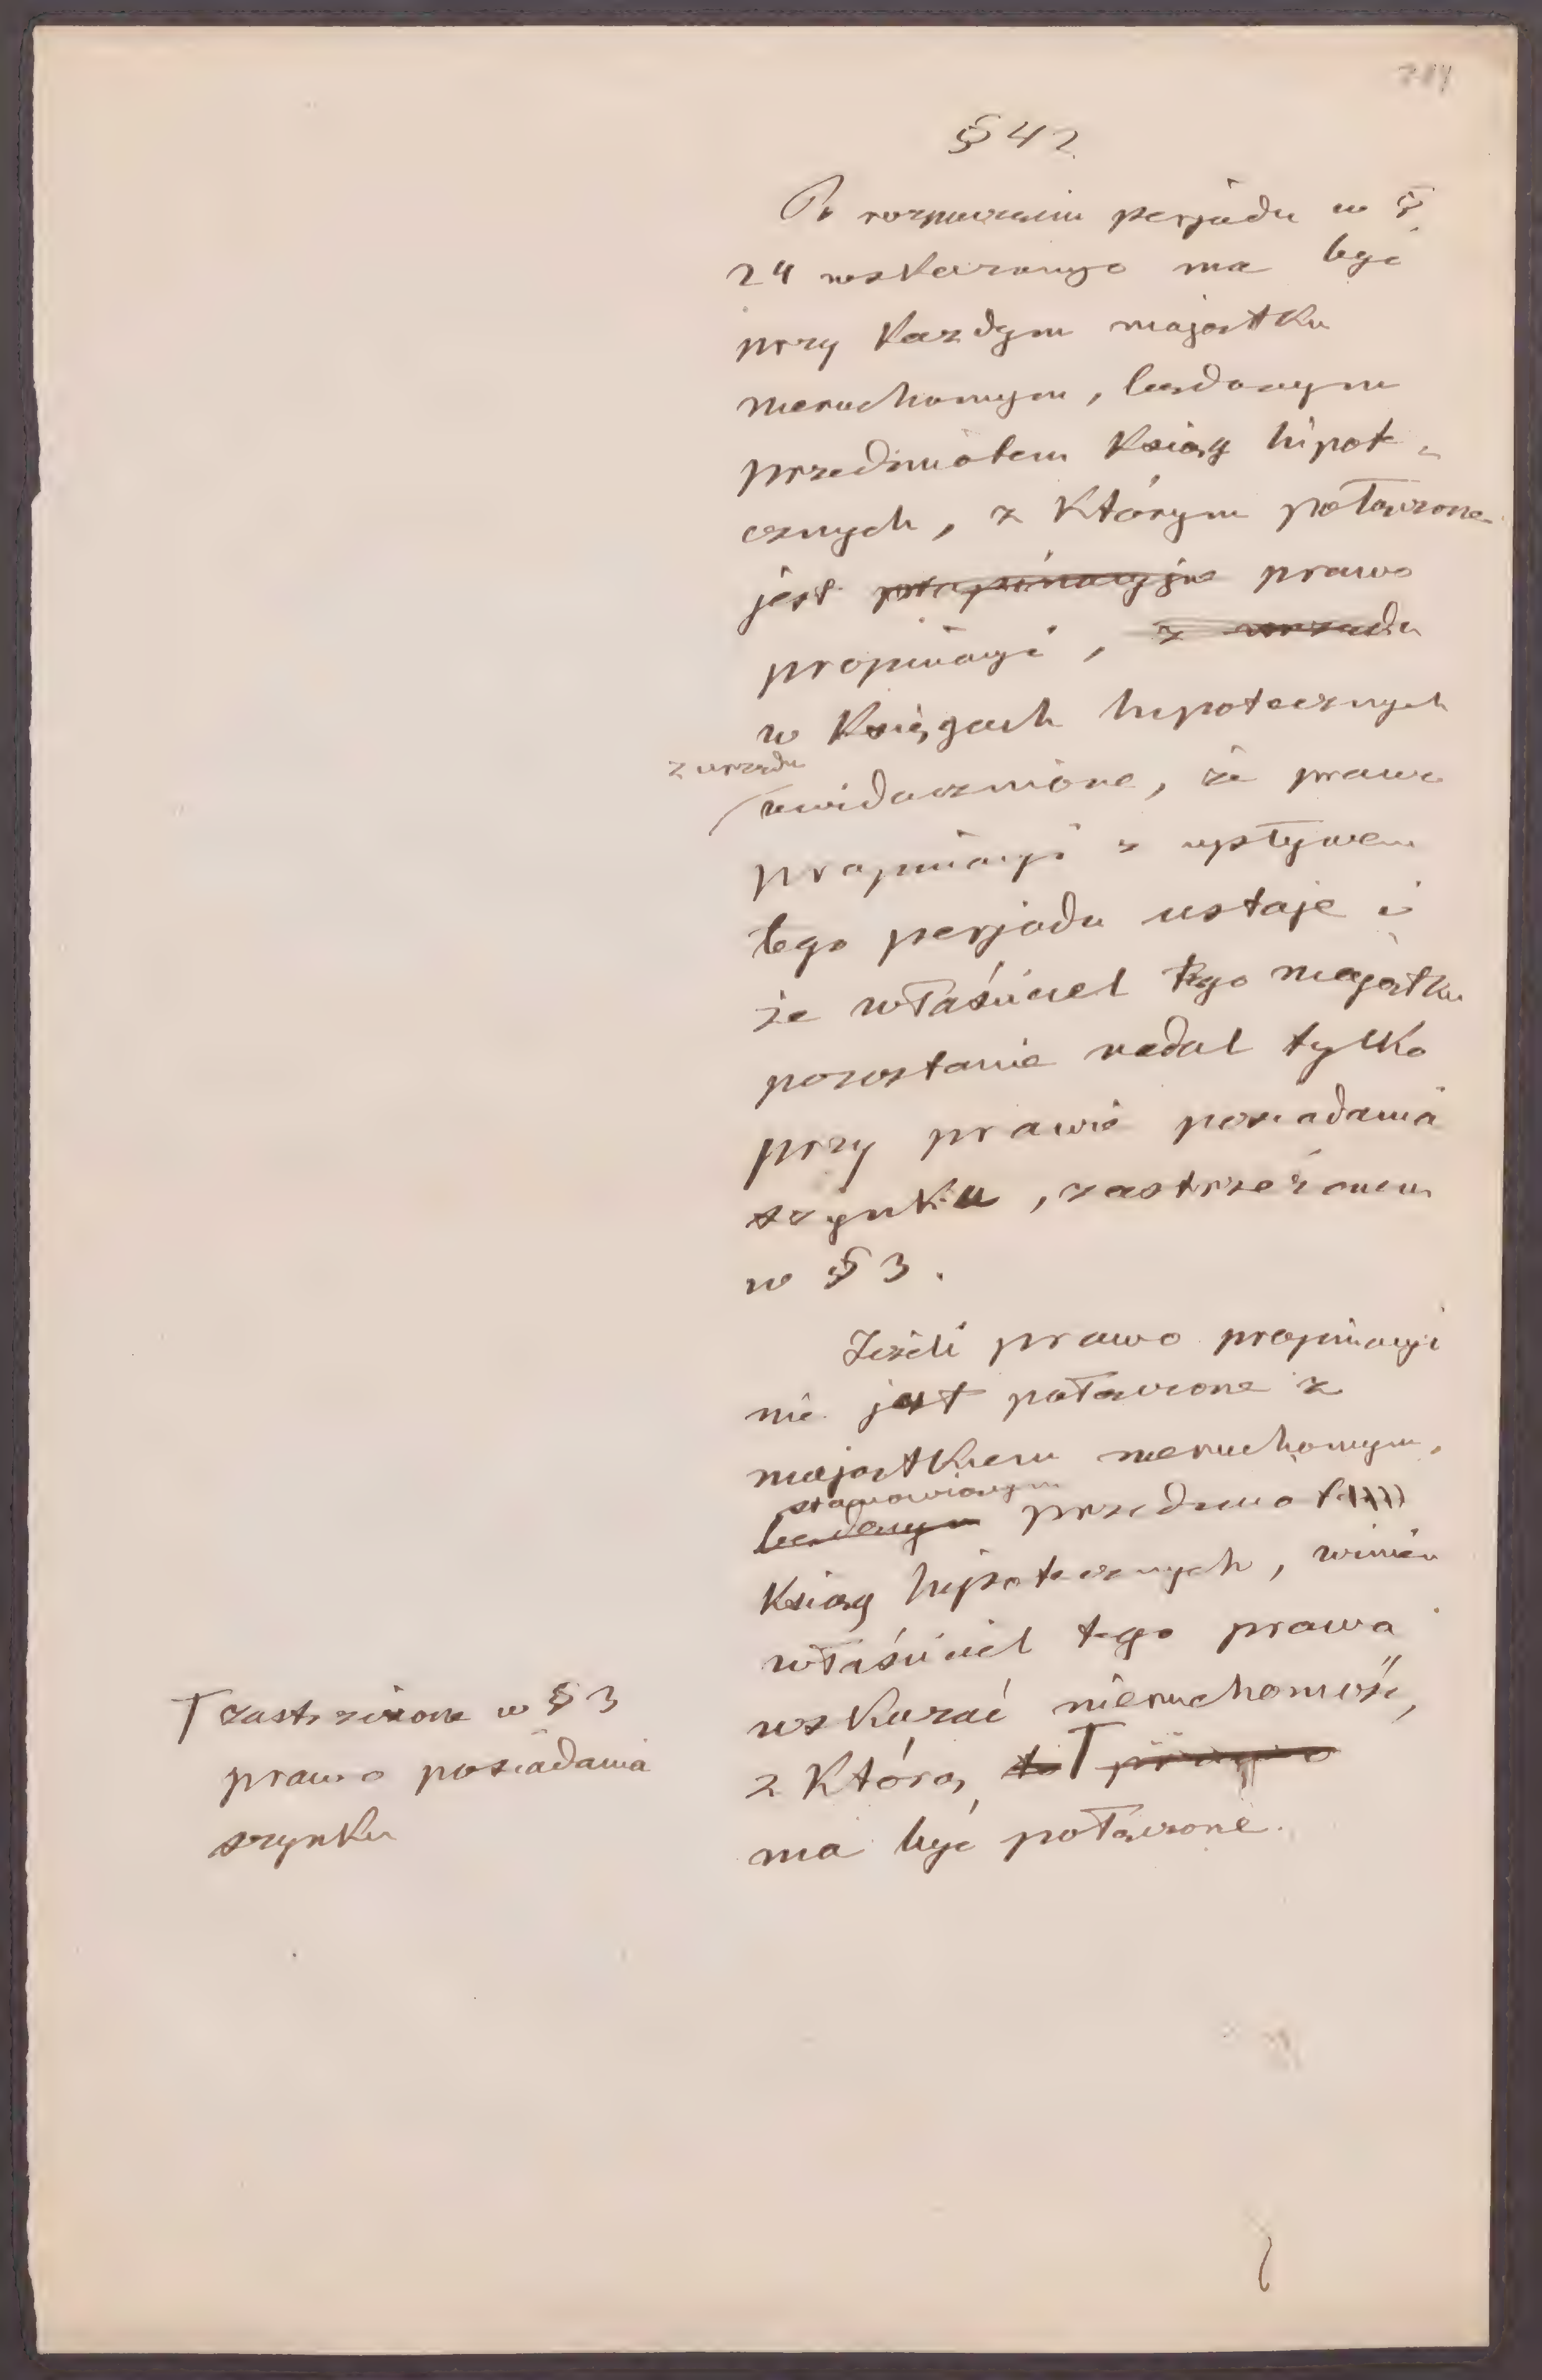 § 42
Po rozpoczęciu perjodu w §
24 wskazanego ma być
przy każdym majątku
nieruchomym, będącym
przedmiotem ksiąg hipot-
cznych, z którym połączone
jest propinacyjne prawo
propinacyi, z urzędu
w księgach hipotecznych
z urzędu
uwidocznione, że prawo
propinacyi z upływem
tego perjodu ustaje i
że właściciel tego majątku
pozostanie nadal tylko
przy prawie posiadania
szynku, zastrzeżonem
w § 3.
Jeżeli prawo propinacyi
nie jest połączone z
majątkiem nieruchomym,
stanowiącym
będącym przedmiot
ksiąg hipotecznych, winien
właściciel tego prawa
wskazać nieruchomość,
z którą to T prawo
ma być połączone.
T zastrzeżone w § 3
prawo posiadania
szynku